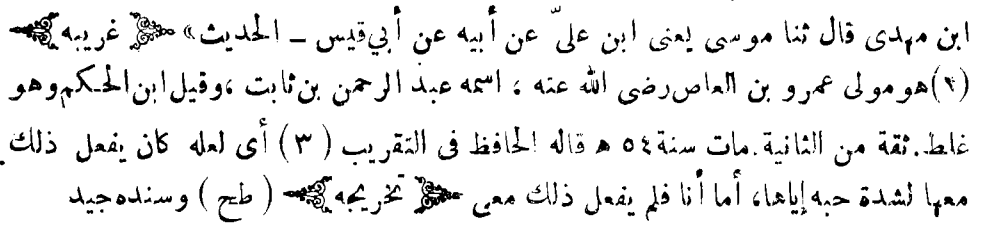 ابن مهدى قال ثنا موسى يعنى ابن علىّ عن أبيه عن أبي قيس ــ الحديث» غريبه
(٢) هو مولى عمرو بن العاص رضى الله عنه ، اسمه عبد الرحمن بن ثابت ،وقيل ابن الحكم وهو
غلط. ثقة من الثانية. مات سنة ٥٤ ه قاله الحافظ فى التقريب (٣) أى لعله كان يفعل ذلك
معها لشدة حبه إياها، أما أنا فلم يفعل ذلك معى تخريجه (طح) وسنده جيد